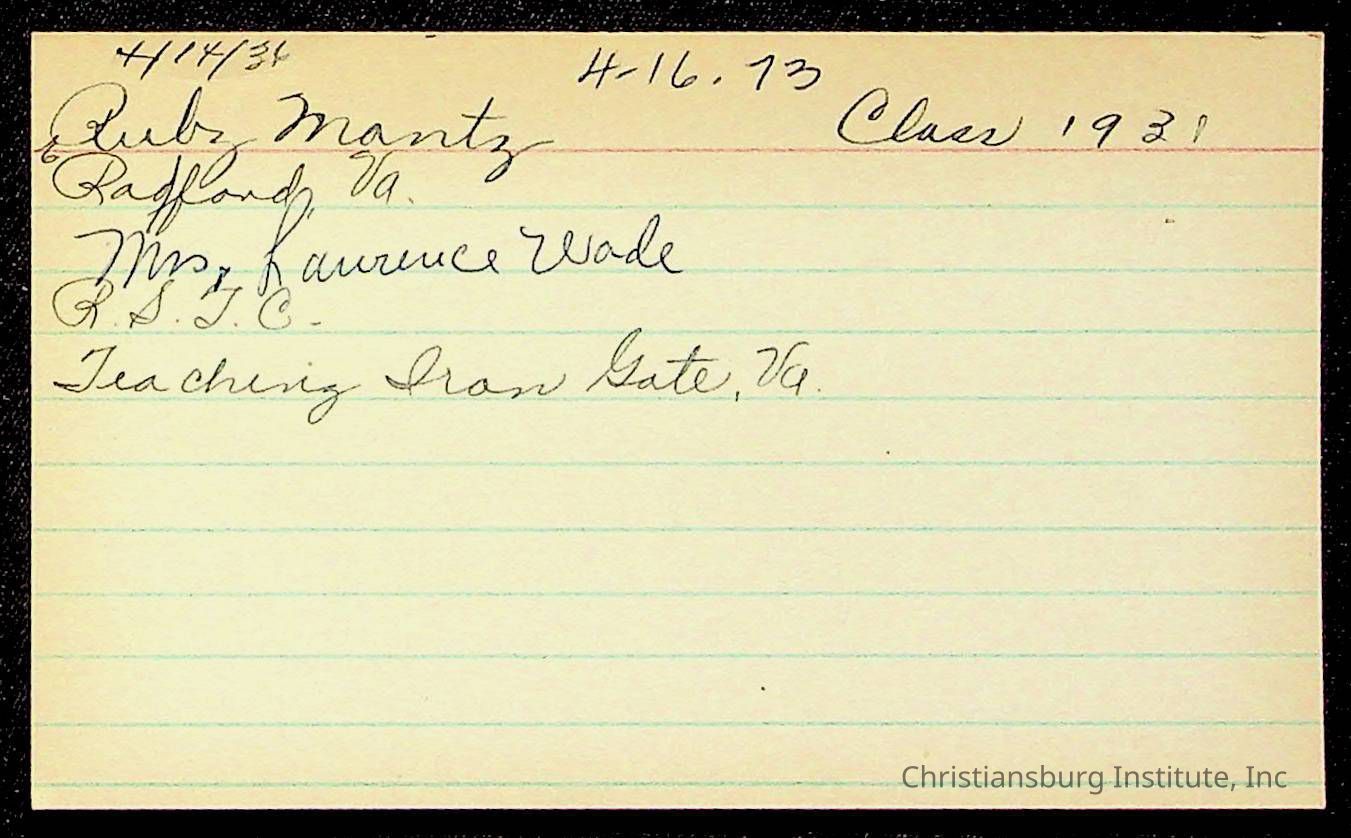 4/14/36 4-16.73
Ruby Mantz Class 1931
Radford, Va.
Mrs. Lawrence Wade
R. S. T. C.
Teaching Iron Gate, Va.
Christiansburg Institute, Inc